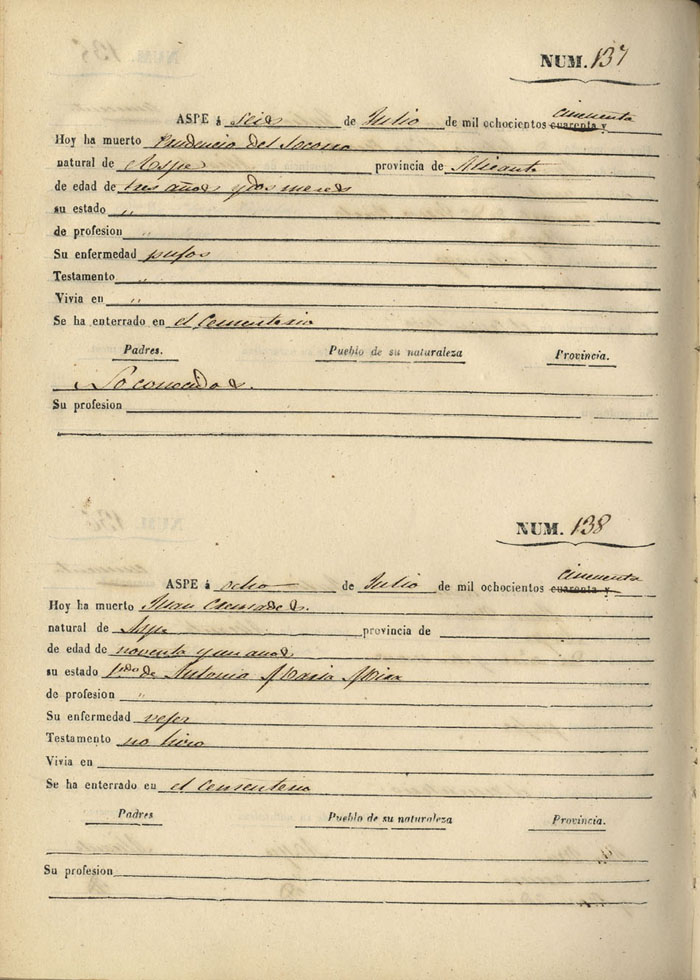 NUM. 137
ASPE á seis de Julio de mil ochocientos cuarenta y cincuenta
Hoy ha muerto Prudencio del Socorro
natural de Aspe provincia de Alicante
de edad de tres años y dos meses
su estado "
de profesion "
Su enfermedad pujos
Testamento "
Vivia en "
Se ha enterrado en el Cementerio
Padres. Pueblo de su naturaleza Provincia.
No conocidos.
Su profesion
NUM. 138
ASPE á ocho de Julio de mil ochocientos cuarenta y cincuenta
Hoy ha muerto Juan
natural de Aspe provincia de
de edad de noventa y un años
su estado de Antonia Maria Mira
de profesion "
Su enfermedad vejez
Testamento no hizo
Vivia en
Se ha enterrado en el Cementerio
Padres Pueblo de su naturaleza Provincia.
Su profesion